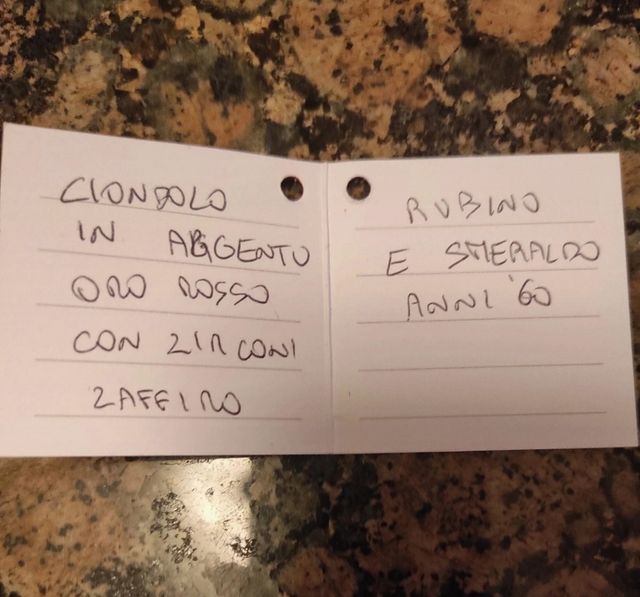 CIONDOLO
IN ARGENTO
ORO ROSSO
CON ZIRCONI
ZAFFIRO
RUBINO
E SMERALDO
ANNI '60